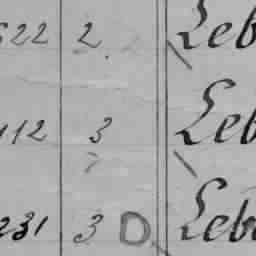 522 2 Leb
112 3 Leb
231 3 D Leb